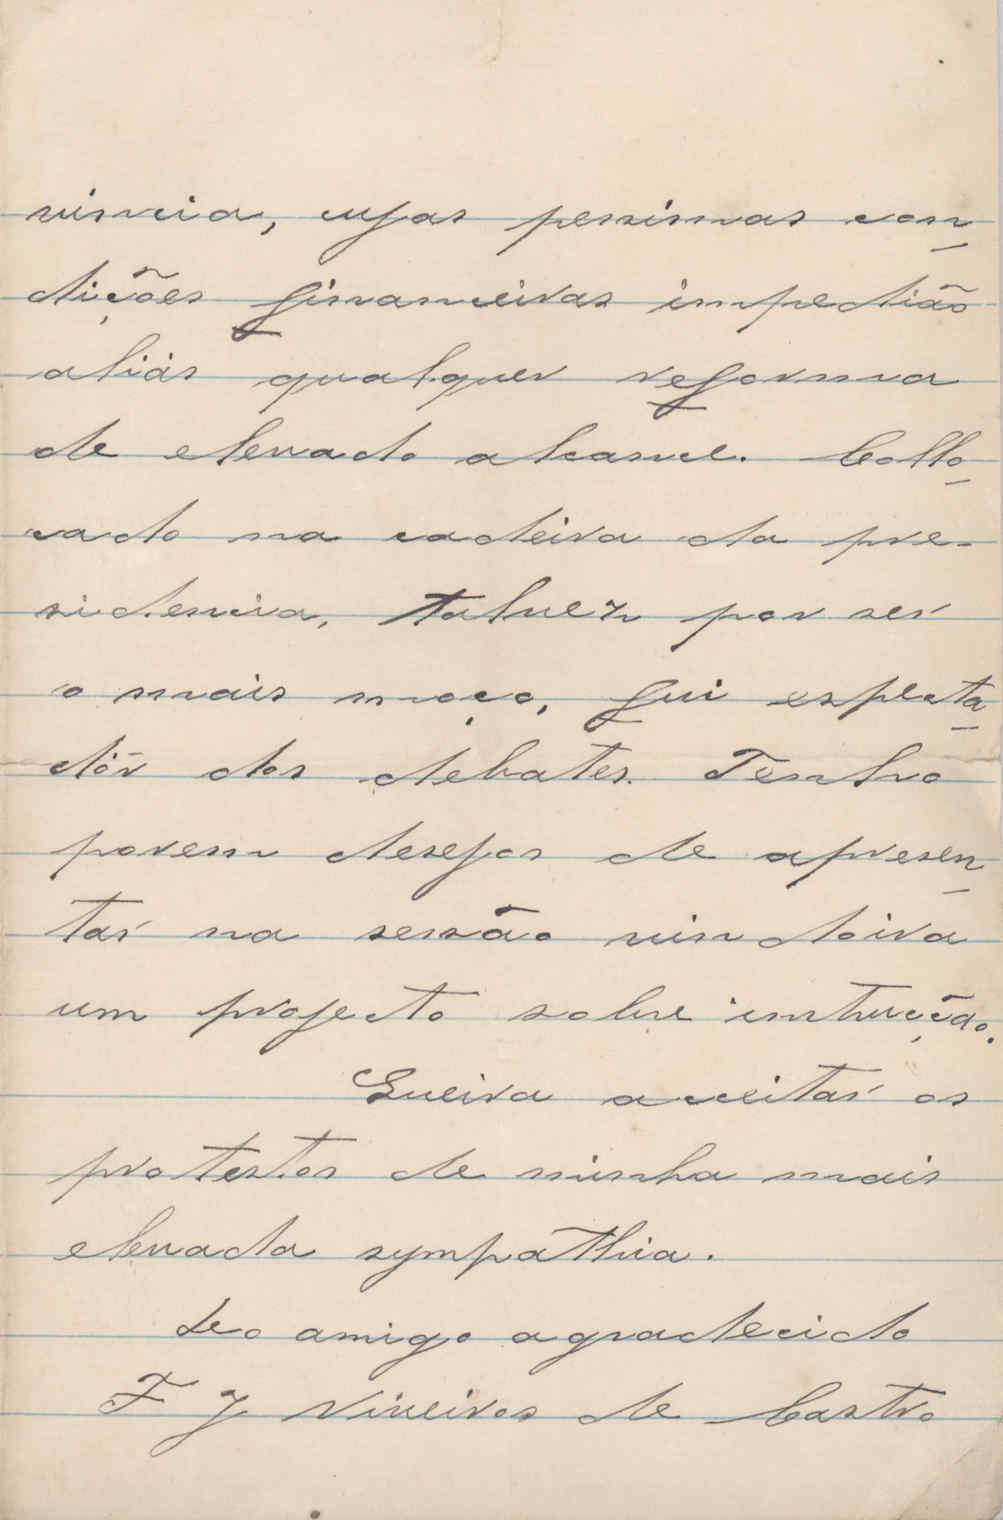 vincia, cujas pessimas con-
dições financeiras impedião
aliás qualquer reforma
de elevado alcance. Collo-
cado na cadeira da pre-
sidencia, talvez por ser
o mais moço, fui especta-
dôr dos debates. Tenho
porem desejos de apresen-
tar na sessão vindoira
um projecto sobre instrucção.
Queira acceitar os
protestos de minha mais
elevada sympathia.
Seo amigo agradecido
F J Viveiros de Castro